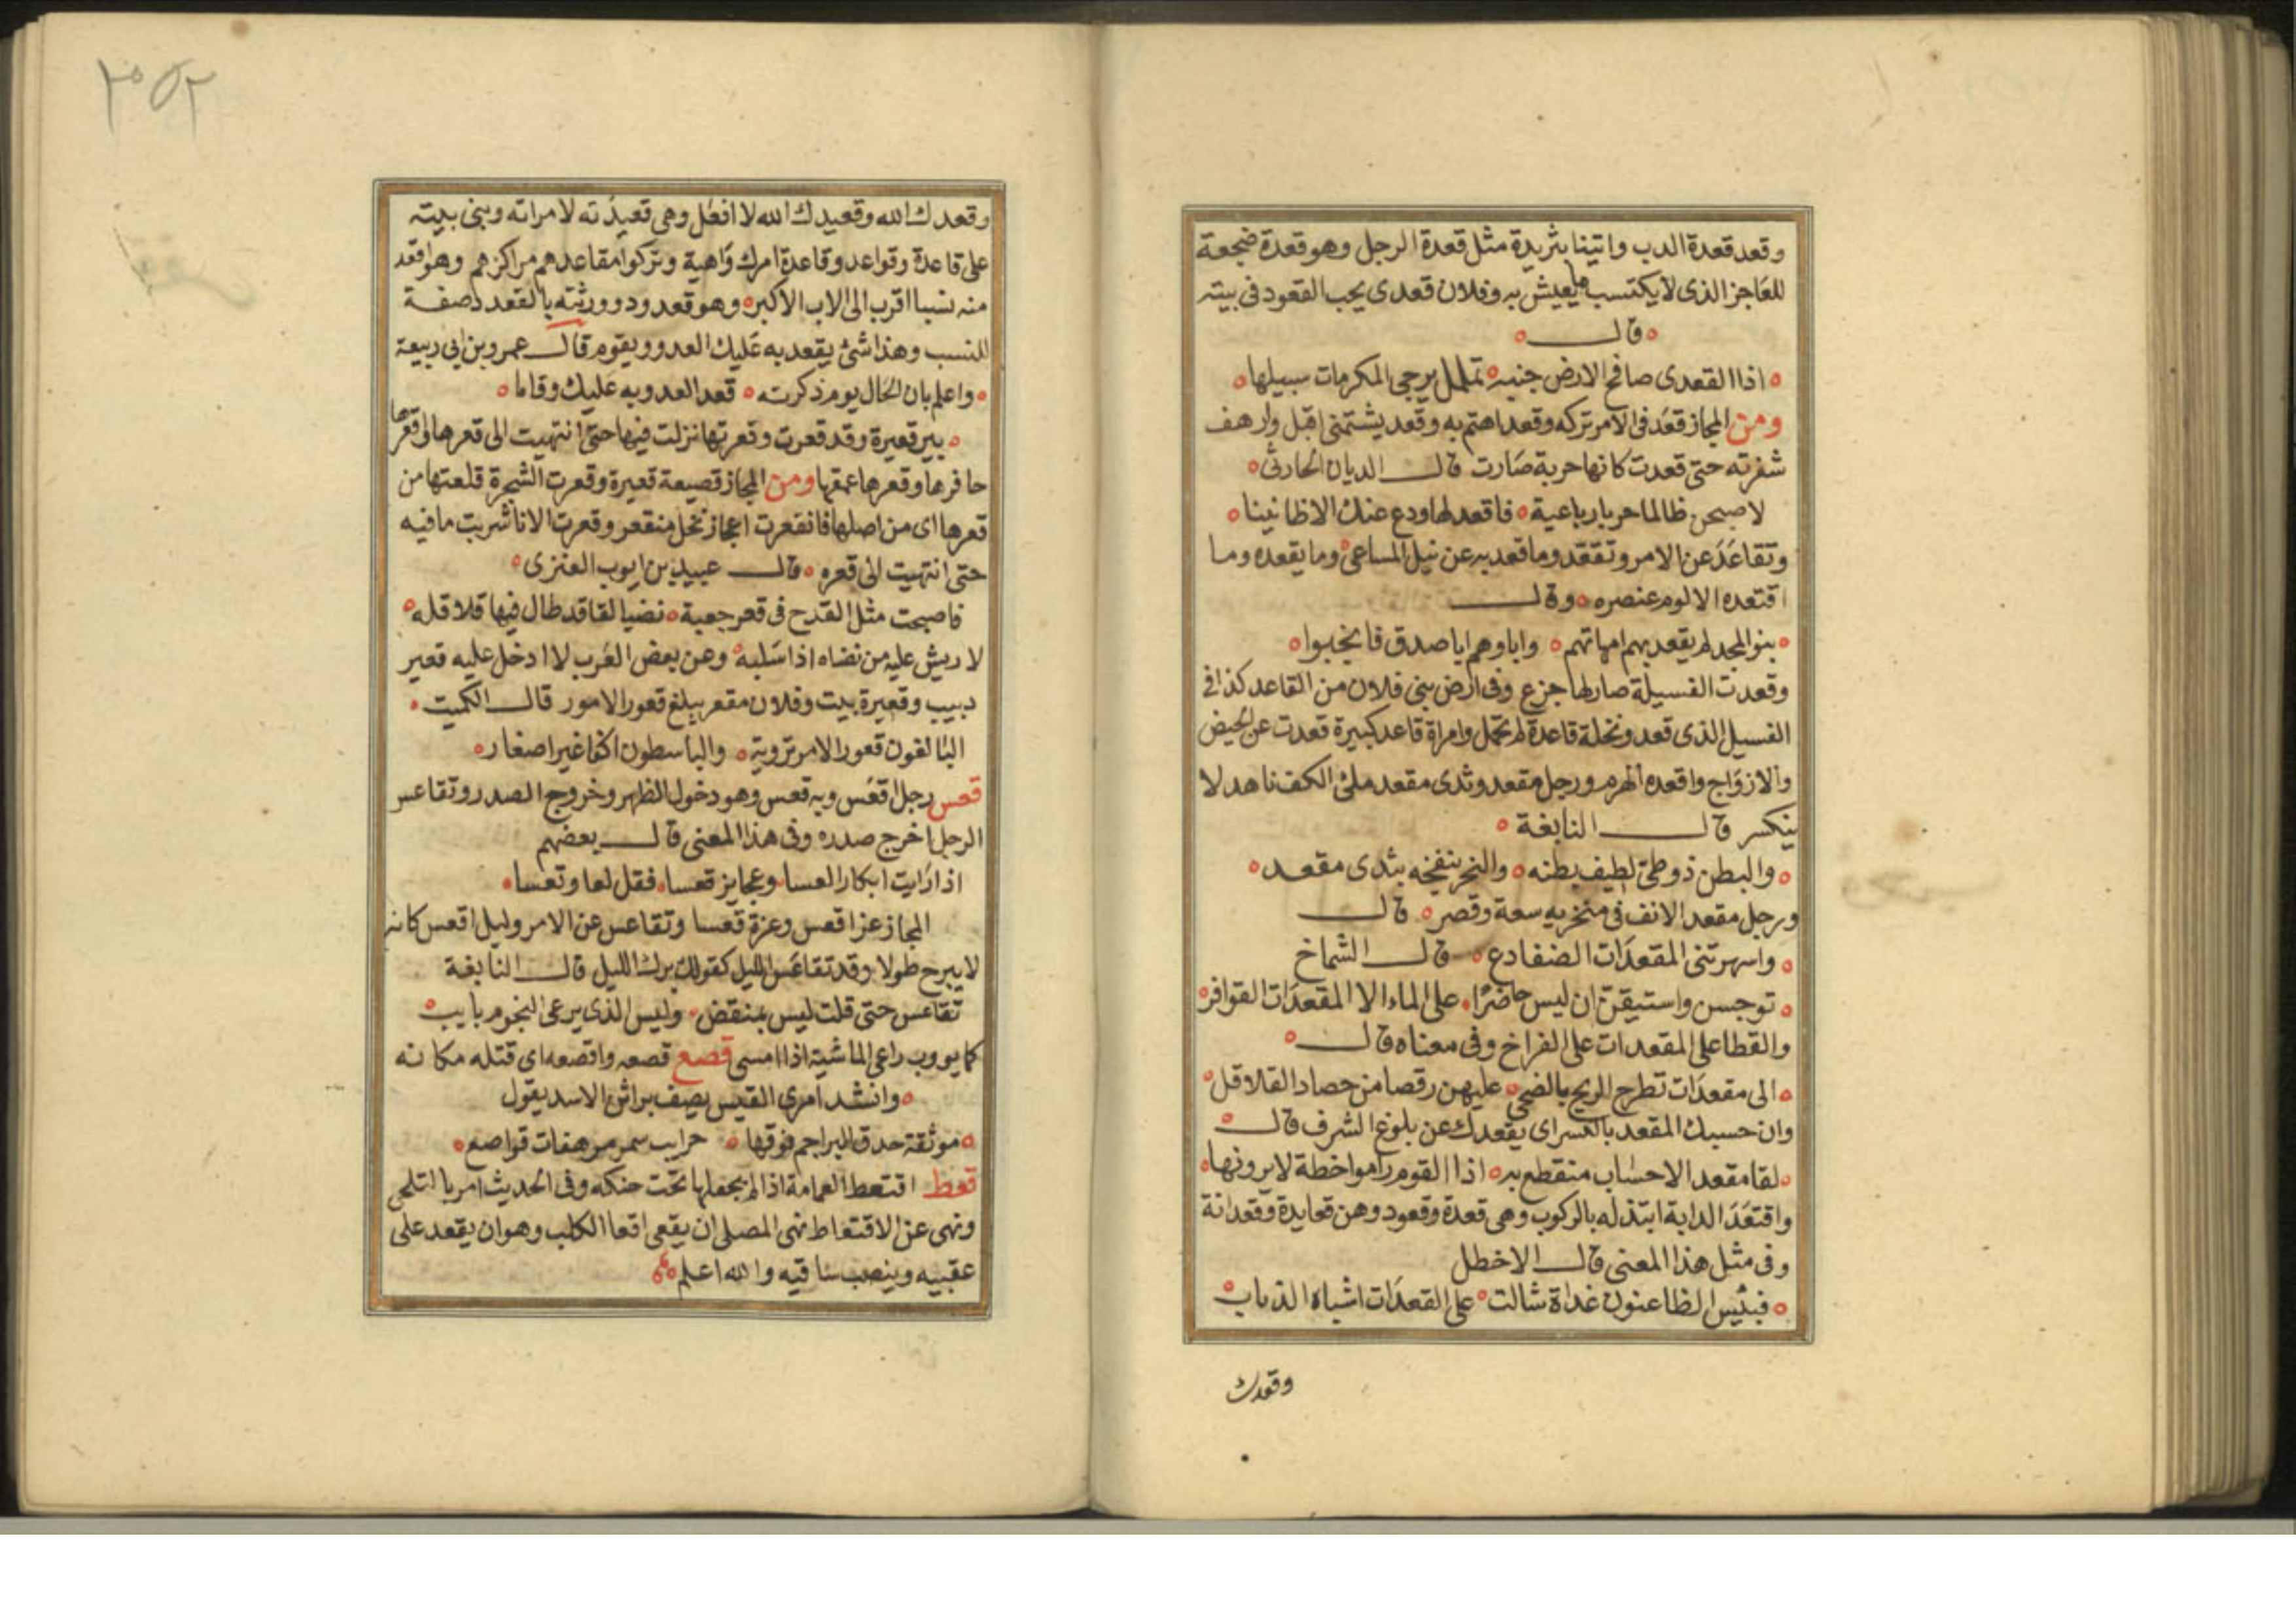 وقعد قعدة الدب واتينا بثريدة مثل قعدة الرجل وهو قعدة ضجعة
للعاجز الذى لا يكتسب ما يعيش به وفلان قعدى يحب القعود فى بيته
قال
اذا القعدى صافح الارض جنبه تململ يرجى المكرمات سبيلها
ومن المجاز قعد فى الامر تركه وقعد اهتم به وقعد يشتمنى اقبل وارهف
شفرته حتى قعدت كانها حربة صارت قال الديان الحارثى
لاصبحن ظالما حربا رباعية فاقعد لها ودع عنك الاظانينا
وتقاعد عن الامر وتقعد وما قعد به عن نيل المساعى وما يقعده وما
اقتعده الا لوم عنصره وقال
بنو المجد لم يقعد بهم امهاتهم واباوهم ابا صدق فانجبوا
وقعدت الفسيلة صار لها جزع وفى ارض بنى فلان من القاعد كذا فى
الفسيل الذى قعد ونخلة قاعدة لم تحمل وامراة قاعد كبيرة قعدت عن الحيض
والازواج واقعده الهرم ورجل مقعد وثدى مقعد ملئ الكف ناهد لا
ينكسر قال النابغة
والبطن ذو طى لطيف بطنه والنحر ينفخه بثدى مقعد
ورجل مقعد الانف فى منخريه سعة وقصر قال
واسهرتنى المقعدات الضفادع قال الشماخ
توجسن واستيقن ان ليس حاضرا على الماء الا المقعدات القوافز
والقطا على المقعدات على الفراخ وفى معناه قال
الى مقعدات تطرح الريح بالضحى عليهن رقصا من حصاد القلاقل
وان حسبك المقعد بالكسر اى يقعدك عن بلوغ الشرف قال
لقا مقعد الاحساب منقطع به اذا القوم راموا خطة لا يرونها
واقتعد الدابة ابتذله بالركوب وهى قعدة وقعود وهن قعايدة وقعدانة
وفى مثل هذا المعنى قال الاخطل
فبئس الظاعنون غداة شالت على القعدات اشباه الذباب
وقعدك
٢٥٢
وقعدك الله وقعيدك الله لا افعل وهى قعيدته لامراته وبنى بيته
على قاعدة وقواعد وقاعدة امرك واهية وتركوا مقاعدهم مراكزهم وهو اقعد
منه نسبا اقرب الى الاب الاكبر وهو قعدود وورثته بالقعدد صفة
للنسب وهذا شئ يقعد به عليك العدو ويقوم قال عمرو بن ابى ربيعة
واعلم بان الحال يوم ذكرته قعد العدو به عليك وقاما
بير قعيرة وقد قعرت وقعرتها نزلت فيها حتى انتهيت الى قعرها واقعرها
حافرها وقعرها عمقها ومن المجاز قصيعة قعيرة وقعرت الشجرة قلعتها من
قعرها اى من اصلها فانقعرت اعجاز نخل منقعر وقعرت الانا شربت ما فيه
حتى انتهيت الى قعره قال عبيد بن ايوب العنزى
فاصبحت مثل القدح فى قعر جعبة نضيا لقا قد طال فيها قلاقله
لا ريش عليه من نضاه اذا سلبه وعن بعض العرب لا ادخل عليه قعير
دبيب وقعيرة بيت وفلان مقعر يبلغ قعور الامور قال الكميت
البالغون قعور الامر تروية والباسطون اكفا غير اصغار
قعس رجل اقعس وبه قعس وهو دخول الظهر وخروج الصدر وتقاعس
الرجل اخرج صدره وفى هذا المعنى قال بعضهم
اذا رايت ابكار العسا وعجايز قعسا فقل لعا وتعسا
المجاز عز اقعس وعزة قعسا وتقاعس عن الامر وليل اقعس كانه
لا يبرح طولا وقد تقاعس الليل كقولك برك الليل قال النابغة
تقاعس حتى قلت ليس بمنقض وليس الذى يرعى النجوم بايب
كما يووب راعى الماشية اذا امسى قصع قصعه واقصعه اى قتله مكانه
وانشد امرى القيس يصف براثن الاسد يقول
موثقة حدق البراجم فوقها حرايب سمر مرهفات قواصع
قعط اقتعط العمامة اذا لم يجعلها تحت حنكه وفى الحديث امر بالتلحى
ونهى عن الاقتعاط نهى المصلى ان يقعى اقعا الكلب وهو ان يقعد على
عقبيه وينصب ساقيه والله اعلم